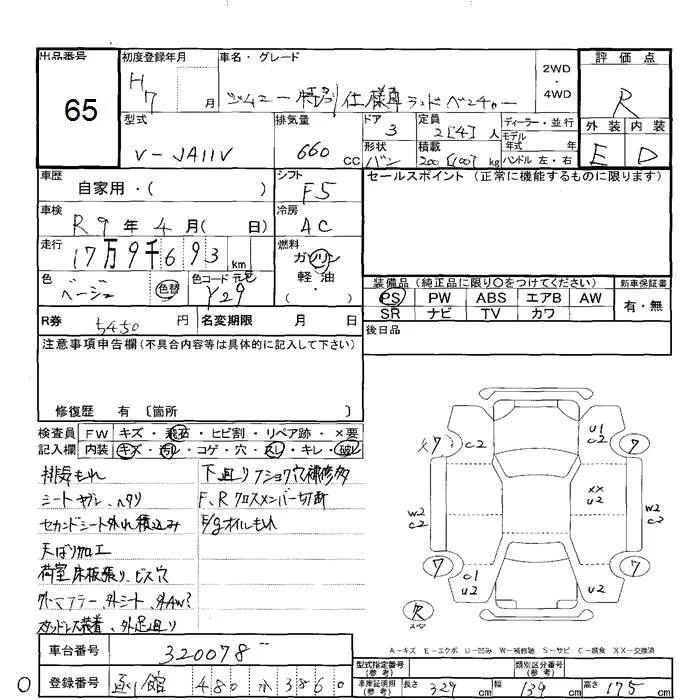 出品番号
65
初度登録年月
H7 月
車名・グレード
ジムニー 特別仕様車 ランドベンチャー
2WD
・
4WD
評価点
R
外装 内装
E D
型式
V-JA11V
排気量
660 CC
ドア
3
定員
2[4]人
形状
バン
積載
200[100]kg
ディーラー・並行
モデル
年式 年
ハンドル 左・右
車歴
自家用・( )
シフト
F5
セールスポイント(正常に機能するものに限ります)
車検
R9年4月( 日)
冷房
AC
走行
17万9千693km
燃料
ガソリン
軽・油
・( )
色
ベージュ
色替
色コード 元色
Y29
装備品(純正品に限り○をつけてください)
PS PW ABS エアB AW
SR ナビ TV カワ
新車保証書
有・無
R券 5450円
名変期限 月 日
後日品
注意事項申告欄(不具合内容等は具体的に記入して下さい)
修復歴 有〔箇所 〕
検査員 FW キズ・飛石・ヒビ割・リペア跡・×要
記入欄 内装 キズ・汚レ・コゲ・穴・スレ・キレ・破レ
排気もれ
シートヤブレ、ヘタリ
セカンドシート外れ積込み
天ばり加工
荷室床板張り、ビス穴
外マフラー、外シート、外AW?
スタッドレス装着、外足廻り
下廻りフショク穴補修多
F、Rクロスメンバー切断
E/gオイルもれ
×7 C2 U1 C2 7
W2 C2 ×× U2 W2 C2
7 C1 U2 U2 7
R
スペア
A-キズ E-エクボ U-凹み W-補修跡 S-サビ C-腐食 XX-交換済
車台番号 320078
型式指定番号(参考)
類別区分番号(参考)
0
登録番号 函館 480 か 3860
車庫証明用(参考) 長さ 329 cm 幅 139 cm 高さ 175 cm